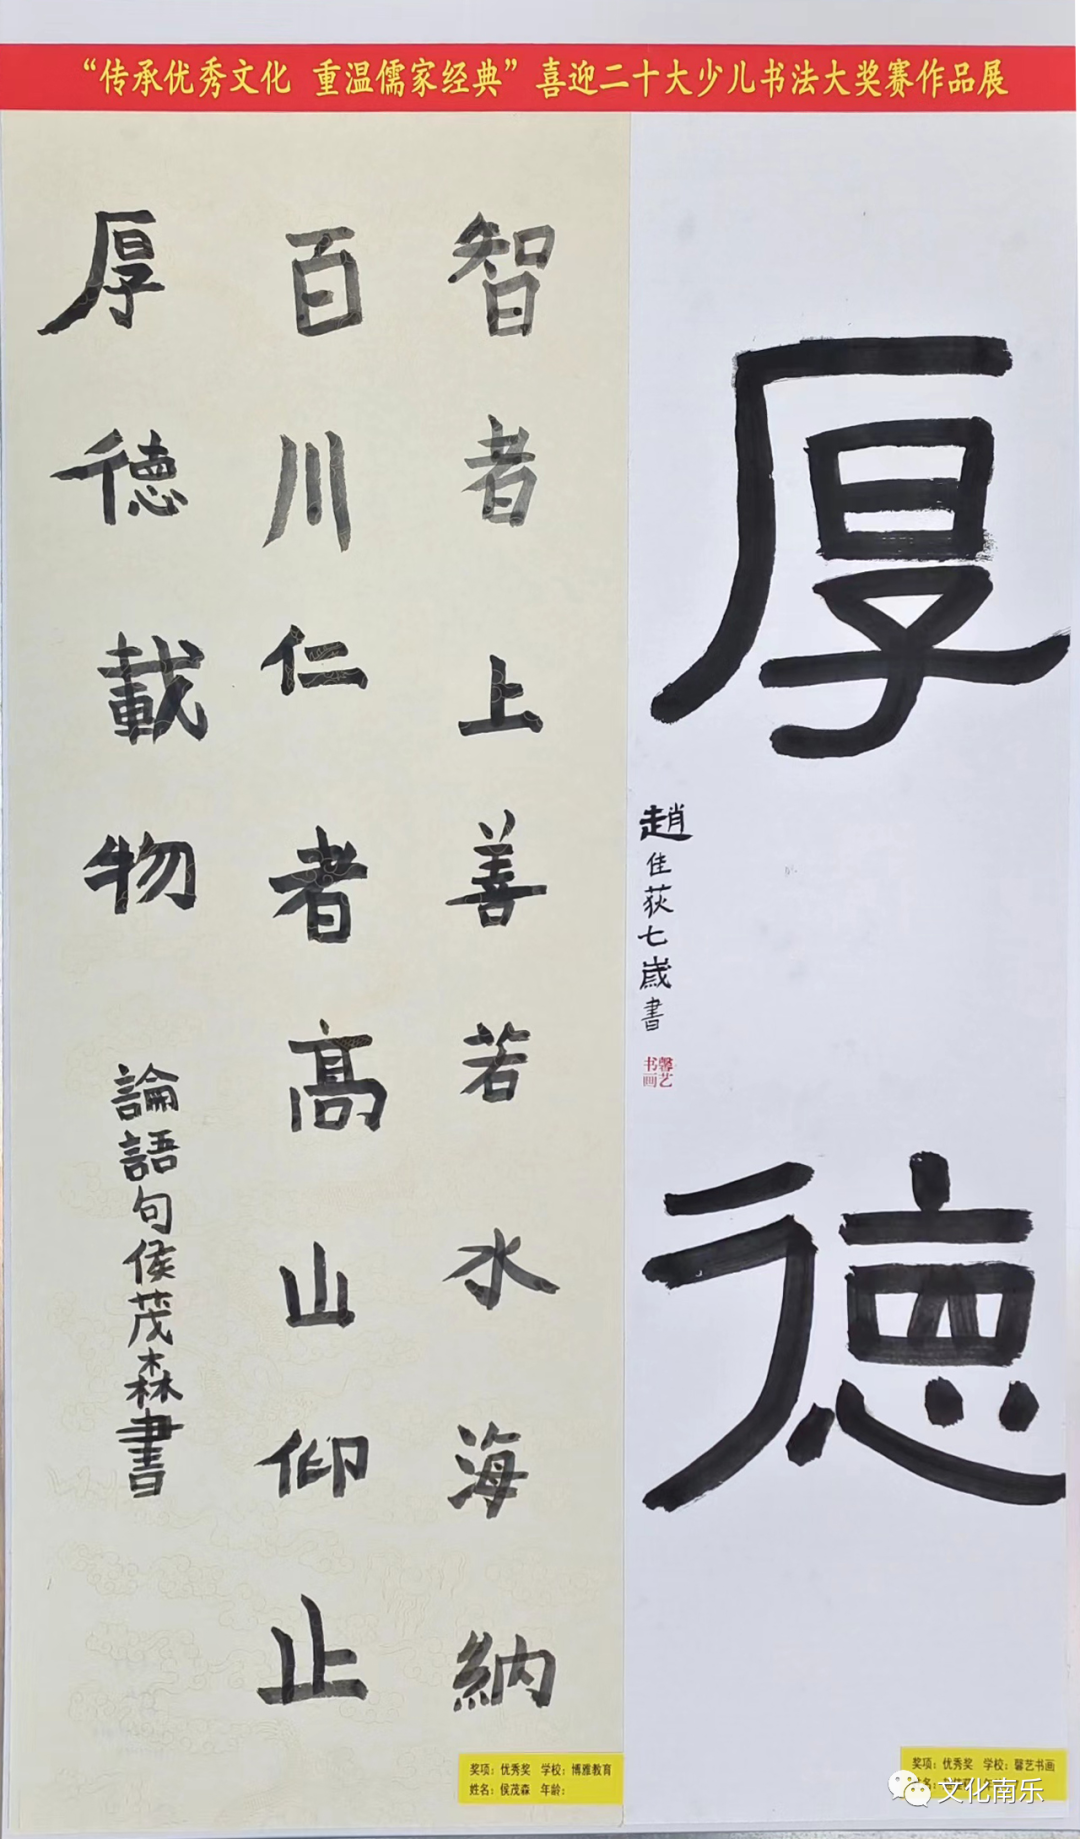 “传承优秀文化 重温儒家经典”喜迎二十大少儿书法大奖赛作品展
厚德
趙佳荻七歲書
馨艺书画
智者上善若水海納
百川仁者高山仰止
厚德載物
論語句侯茂森書
奖项：优秀奖 学校：博雅教育
姓名：侯茂森 年龄：
奖项：优秀奖 学校：馨艺书画
文化南乐